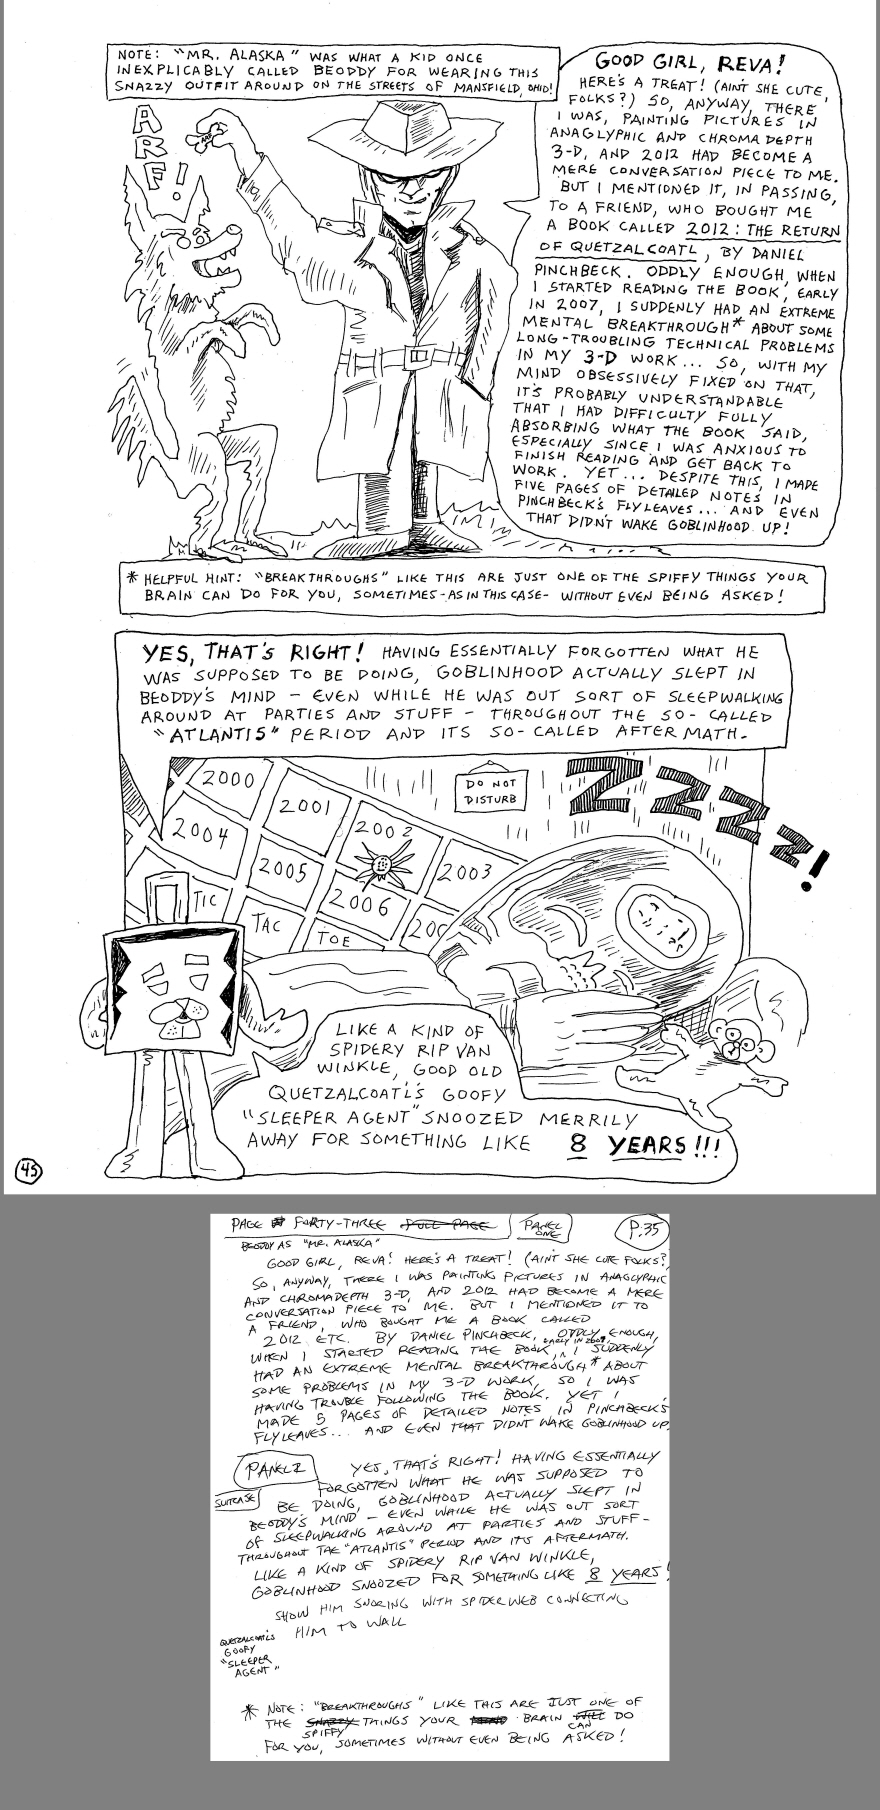 NOTE: "MR. ALASKA" WAS WHAT A KID ONCE
INEXPLICABLY CALLED BEODDY FOR WEARING THIS
SNAZZY OUTFIT AROUND ON THE STREETS OF MANSFIELD, OHIO!
ARF!
GOOD GIRL, REVA!
HERE'S A TREAT! (AIN'T SHE CUTE,
FOLKS?) SO, ANYWAY, THERE
I WAS, PAINTING PICTURES IN
ANAGLYPHIC AND CHROMADEPTH
3-D, AND 2012 HAD BECOME A
MERE CONVERSATION PIECE TO ME.
BUT I MENTIONED IT, IN PASSING,
TO A FRIEND, WHO BOUGHT ME
A BOOK CALLED 2012: THE RETURN
OF QUETZALCOATL, BY DANIEL
PINCHBECK. ODDLY ENOUGH, WHEN
I STARTED READING THE BOOK, EARLY
IN 2007, I SUDDENLY HAD AN EXTREME
MENTAL BREAKTHROUGH* ABOUT SOME
LONG-TROUBLING TECHNICAL PROBLEMS
IN MY 3-D WORK... SO, WITH MY
MIND OBSESSIVELY FIXED ON THAT,
IT'S PROBABLY UNDERSTANDABLE
THAT I HAD DIFFICULTY FULLY
ABSORBING WHAT THE BOOK SAID,
ESPECIALLY SINCE I WAS ANXIOUS TO
FINISH READING AND GET BACK TO
WORK. YET... DESPITE THIS, I MADE
FIVE PAGES OF DETAILED NOTES IN
PINCHBECK'S FLYLEAVES... AND EVEN
THAT DIDN'T WAKE GOBLINHOOD UP!
* HELPFUL HINT: "BREAKTHROUGHS" LIKE THIS ARE JUST ONE OF THE SPIFFY THINGS YOUR
BRAIN CAN DO FOR YOU, SOMETIMES-AS IN THIS CASE- WITHOUT EVEN BEING ASKED!
YES, THAT'S RIGHT! HAVING ESSENTIALLY FORGOTTEN WHAT HE
WAS SUPPOSED TO BE DOING, GOBLINHOOD ACTUALLY SLEPT IN
BEODDY'S MIND - EVEN WHILE HE WAS OUT SORT OF SLEEPWALKING
AROUND AT PARTIES AND STUFF - THROUGHOUT THE SO-CALLED
"ATLANTIS" PERIOD AND ITS SO-CALLED AFTERMATH.
2000
2001
2002
2003
2004
2005
2006
200
TIC
TAC
TOE
DO NOT
DISTURB
ZZZZ!
LIKE A KIND OF
SPIDERY RIP VAN
WINKLE, GOOD OLD
QUETZALCOATL'S GOOFY
"SLEEPER AGENT" SNOOZED MERRILY
AWAY FOR SOMETHING LIKE 8 YEARS!!!
45
PAGE # FORTY-THREE FULL PAGE PANEL ONE P.35
BEODDY AS "MR. ALASKA"
GOOD GIRL, REVA! HERE'S A TREAT! (AIN'T SHE CUTE FOLKS?
SO, ANYWAY, THERE I WAS PAINTING PICTURES IN ANAGLYPHIC
AND CHROMADEPTH 3-D, AND 2012 HAD BECOME A MERE
CONVERSATION PIECE TO ME. BUT I MENTIONED IT TO
A FRIEND, WHO BOUGHT ME A BOOK CALLED
2012 ETC. BY DANIEL PINCHBECK, ODDLY ENOUGH,
WHEN I STARTED READING THE BOOK, EARLY IN 2007, I SUDDENLY
HAD AN EXTREME MENTAL BREAKTHROUGH* ABOUT
SOME PROBLEMS IN MY 3-D WORK, SO I WAS
HAVING TROUBLE FOLLOWING THE BOOK. YET I
MADE 5 PAGES OF DETAILED NOTES IN PINCHBECK'S
FLYLEAVES... AND EVEN THAT DIDN'T WAKE GOBLINHOOD UP.
PANEL 2
YES, THAT'S RIGHT! HAVING ESSENTIALLY
SUITCASE
FORGOTTEN WHAT HE WAS SUPPOSED TO
BE DOING, GOBLINHOOD ACTUALLY SLEPT IN
BEODDY'S MIND - EVEN WHILE HE WAS OUT SORT
OF SLEEPWALKING AROUND AT PARTIES AND STUFF-
THROUGHOUT THE "ATLANTIS" PERIOD AND ITS AFTERMATH.
LIKE A KIND OF SPIDERY RIP VAN WINKLE,
GOBLINHOOD SNOOZED FOR SOMETHING LIKE 8 YEARS!
SHOW HIM SNORING WITH SPIDERWEB CONNECTING
HIM TO WALL
QUETZALCOATL'S
GOOFY
"SLEEPER
AGENT"
* NOTE: "BREAKTHROUGHS" LIKE THIS ARE JUST ONE OF
THE SNAZZY SPIFFY THINGS YOUR BRAIN WILL CAN DO
FOR YOU, SOMETIMES WITHOUT EVEN BEING ASKED!